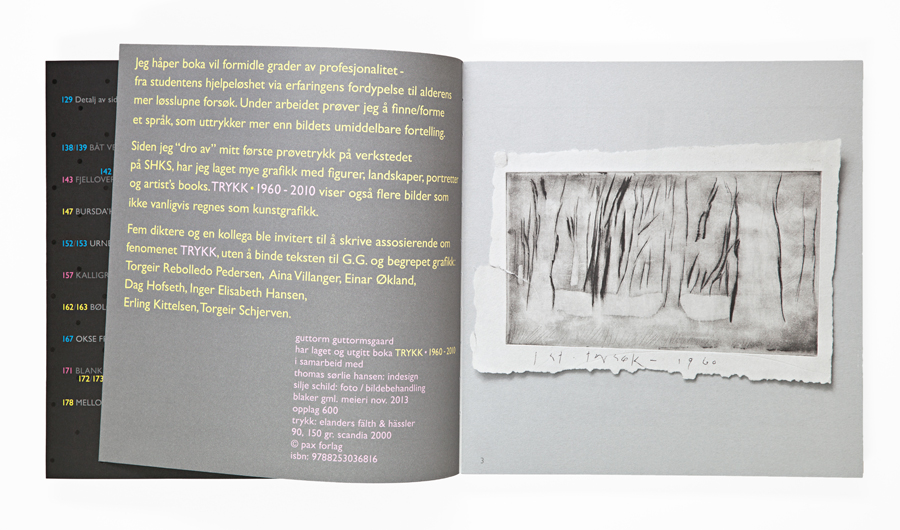 129 Detalj av sid
138/139 BÅT VE
142
143 FJELLOVER
147 BURSDA'
152/153 URNE
157 KALLIGR
162/163 BØL
167 OKSE F
171 BLANK
172/173
178 MELLO
Jeg håper boka vil formidle grader av profesjonalitet -
fra studentens hjelpeløshet via erfaringens fordypelse til alderens
mer løsslupne forsøk. Under arbeidet prøver jeg å finne/forme
et språk, som uttrykker mer enn bildets umiddelbare fortelling.
Siden jeg “dro av” mitt første prøvetrykk på verkstedet
på SHKS, har jeg laget mye grafikk med figurer, landskaper, portretter
og artist's books. TRYKK • 1960 - 2010 viser også flere bilder som
ikke vanligvis regnes som kunstgrafikk.
Fem diktere og en kollega ble invitert til å skrive assosierende om
fenomenet TRYKK, uten å binde teksten til G.G. og begrepet grafikk:
Torgeir Rebolledo Pedersen, Aina Villanger, Einar Økland,
Dag Hofseth, Inger Elisabeth Hansen,
Erling Kittelsen, Torgeir Schjerven.
guttorm guttormsgaard
har laget og utgitt boka TRYKK • 1960 - 2010
i samarbeid med
thomas sørlie hansen: indesign
silje schild: foto / bildebehandling
blaker gml. meieri nov. 2013
opplag 600
trykk: elanders fälth & hässler
90, 150 gr. scandia 2000
© pax forlag
isbn: 9788253036816
1 st. trysøk - 1960
3